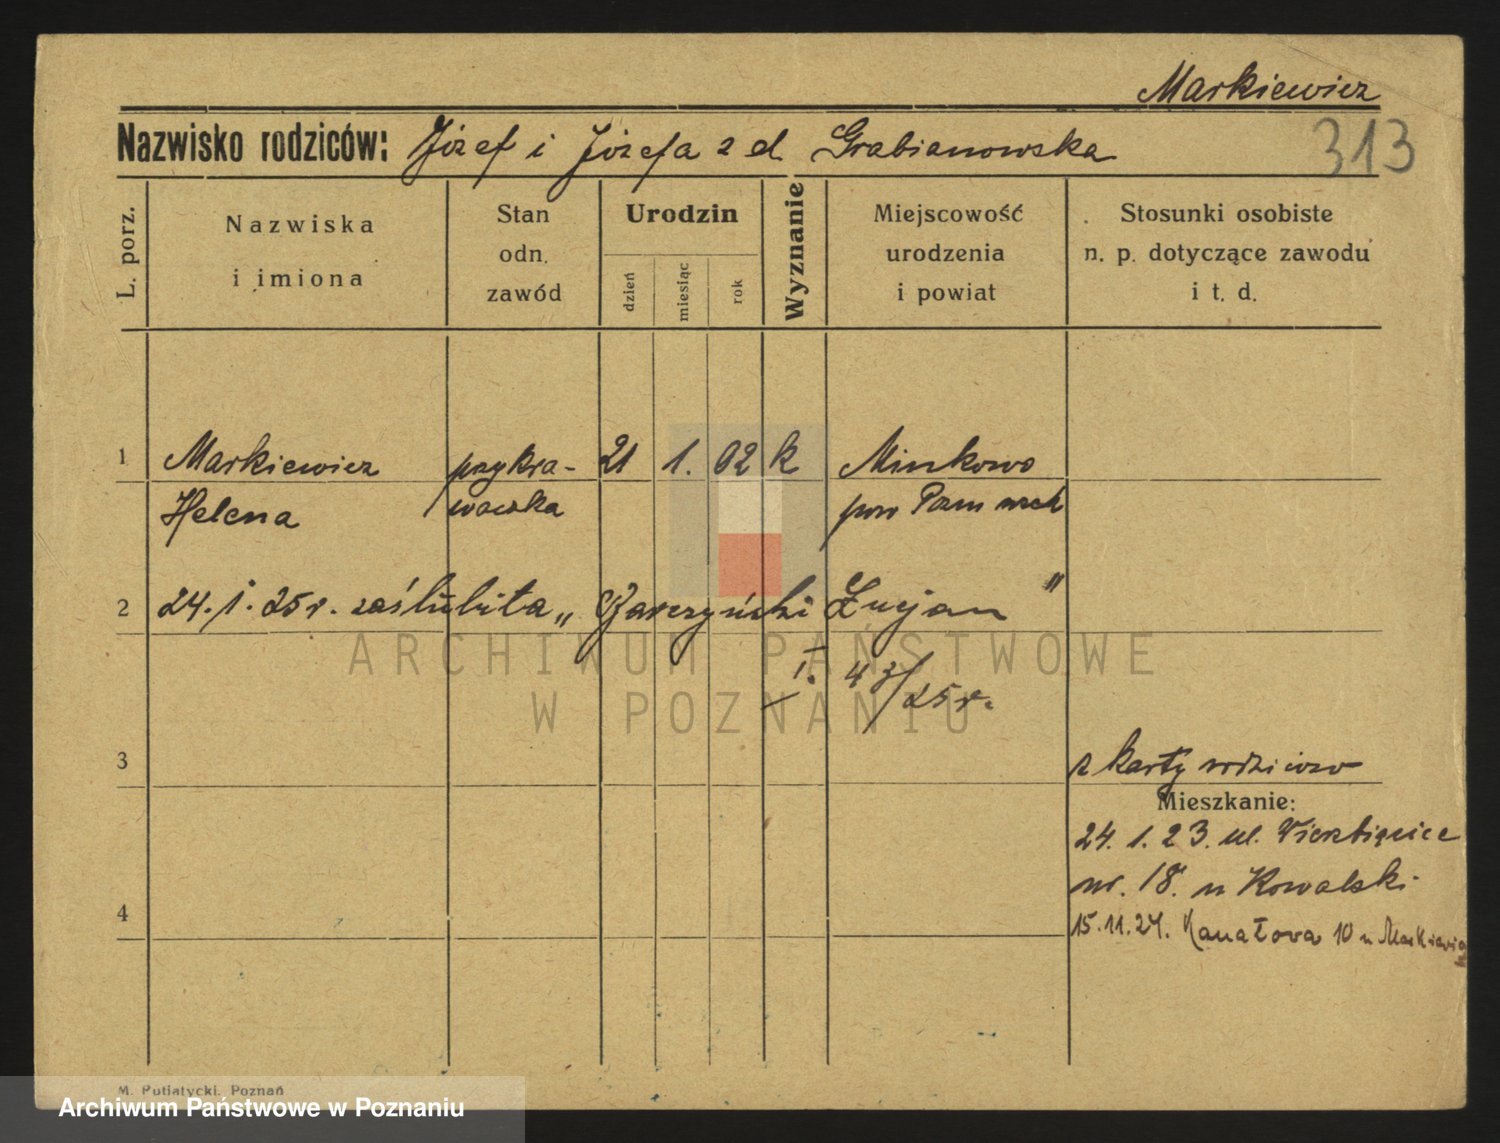 Markiewicz
Nazwisko rodziców: Józef i Józefa z d. Grabianowska
313
L. porz.
Nazwiska
i imiona
Stan
odn.
zawód
Urodzin
dzień
miesiąc
rok
Wyznanie
Miejscowość
urodzenia
i powiat
Stosunki osobiste
n. p. dotyczące zawodu
i t. d.
1 Markiewicz 21 1. 02 k
Helena
pow
2 24. 1. 25 r. zaślubiła „ Lucjan "
I. 43/25 r.
3
z karty rodziców
Mieszkanie:
24. 1. 23. ul. Wierzbięcice
nr. 18. u Kowalski
4
15.11.24. Kanałowa 10 u Markiewicz
ARCHIWUM PAŃSTWOWE
W POZNANIU
M. Putiatycki, Poznań
Archiwum Państwowe w Poznaniu